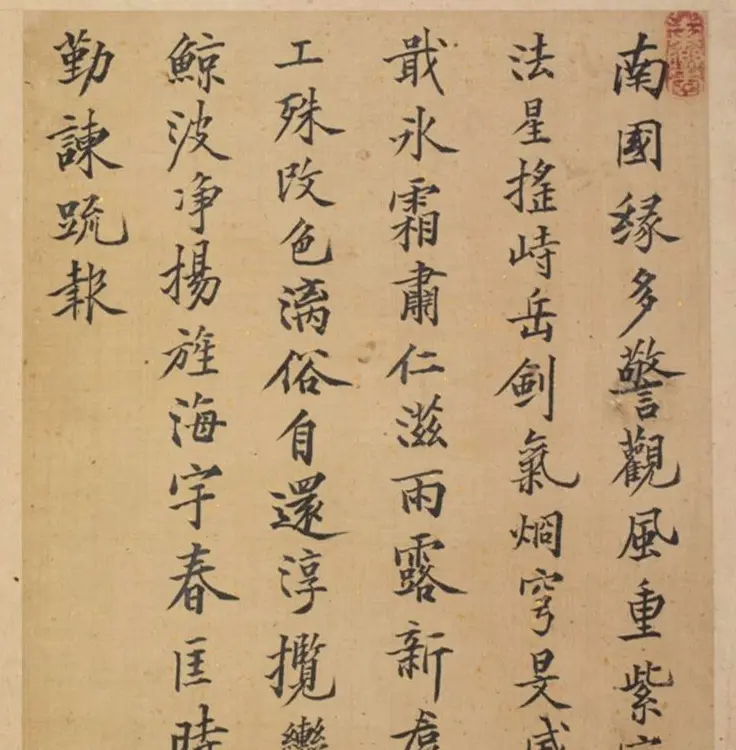 南國緣多警觀風重紫
法星搖峙岳劍氣烱穹旻威
戢氷霜肅仁滋雨露新
工殊改色漓俗自還淳攬轡
鯨波净揚旌海宇春匡時
勤諫疏報